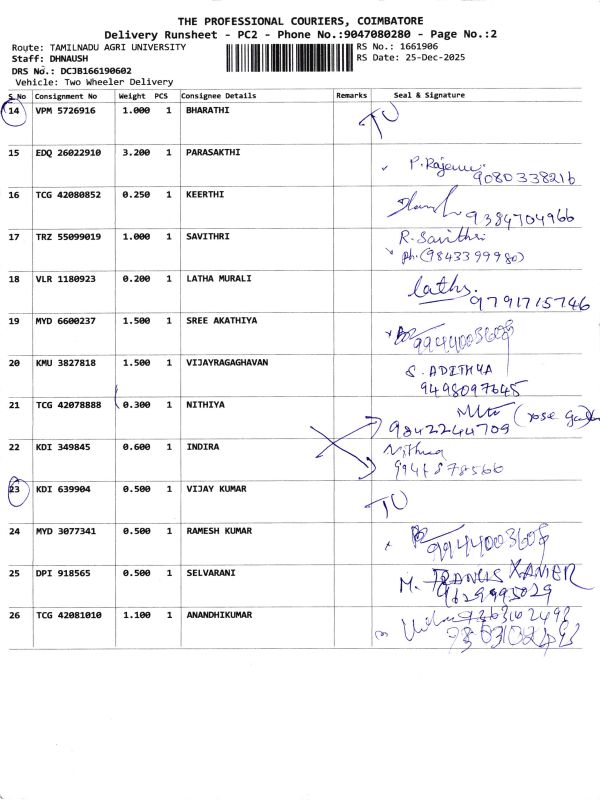 THE PROFESSIONAL COURIERS, COIMBATORE
Delivery Runsheet - PC2 - Phone No.:9047080280 - Page No.:2
Route: TAMILNADU AGRI UNIVERSITY
RS No.: 1661906
Staff: DHNAUSH
RS Date: 25-Dec-2025
DRS No.: DCJB166190602
Vehicle: Two Wheeler Delivery
S.No Consignment No Weight PCS Consignee Details Remarks Seal & Signature
14 VPM 5726916 1.000 1 BHARATHI TU
15 EDQ 26022910 3.200 1 PARASAKTHI
9080338216
16 TCG 42080852 0.250 1 KEERTHI
9384704966
17 TRZ 55099019 1.000 1 SAVITHRI R. Savithri
Ph. (9843399980)
18 VLR 1180923 0.200 1 LATHA MURALI Latha.
9791715746
19 MYD 6600237 1.500 1 SREE AKATHIYA
9944003608
20 KMU 3827818 1.500 1 VIJAYRAGAGHAVAN S. ADITHYA
9498097645
21 TCG 42078888 0.300 1 NITHIYA
9842244709
22 KDI 349845 0.600 1 INDIRA Nithya
23 KDI 639904 0.500 1 VIJAY KUMAR TU
24 MYD 3077341 0.500 1 RAMESH KUMAR
9944003608
25 DPI 918565 0.500 1 SELVARANI M. FRANCIS XAVIER
9629995029
26 TCG 42081010 1.100 1 ANANDHIKUMAR